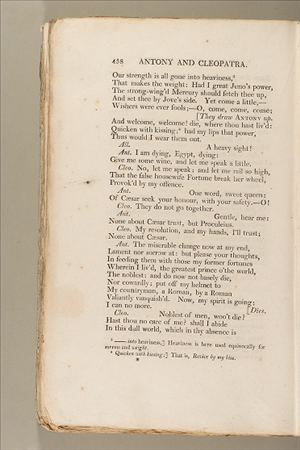 458 ANTONY AND CLEOPATRA.
Our strength is all gone into heaviness,⁸
That makes the weight: Had I great Juno's power,
The strong-wing'd Mercury should fetch thee up,
And set thee by Jove's side. Yet come a little,—
Wishers were ever fools;—O, come, come, come;
[They draw ANTONY up.
And welcome, welcome! die, where thou hast liv'd:
Quicken with kissing;⁹ had my lips that power,
Thus would I wear them out.
All. A heavy sight!
Ant. I am dying, Egypt, dying:
Give me some wine, and let me speak a little.
Cleo. No, let me speak; and let me rail so high,
That the false housewife Fortune break her wheel,
Provok'd by my offence.
Ant. One word, sweet queen:
Of Cæsar seek your honour, with your safety.—O!
Cleo. They do not go together.
Ant. Gentle, hear me:
None about Cæsar trust, but Proculeius.
Cleo. My resolution, and my hands, I'll trust;
None about Cæsar.
Ant. The miserable change now at my end,
Lament nor sorrow at: but please your thoughts,
In feeding them with those my former fortunes
Wherein I liv'd, the greatest prince o'the world,
The noblest: and do now not basely die,
Nor cowardly; put off my helmet to
My countryman, a Roman, by a Roman
Valiantly vanquish'd. Now, my spirit is going;
I can no more. [Dies.
Cleo. Noblest of men, woo't die?
Hast thou no care of me? shall I abide
In this dull world, which in thy absence is
⁸ —— into heaviness,] Heaviness is here used equivocally for
sorrow and weight.
⁹ Quicken with kissing;] That is, Revive by my kiss.